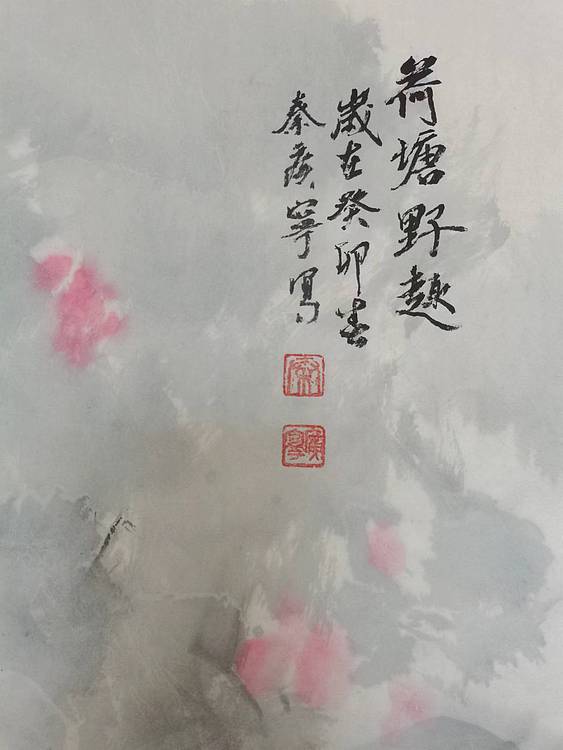 荷塘野趣
歲在癸卯春
秦廣寧寫
秦
廣寧